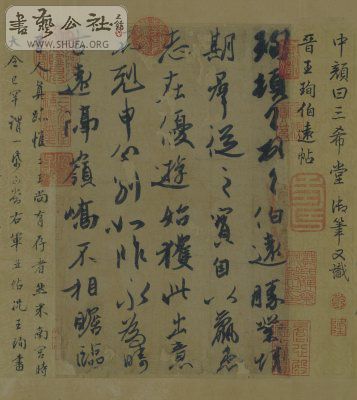 中顏曰三希堂御筆又識
晉王珣伯遠帖
珣頓首頓首伯遠勝業情
期羣從之寶自以羸患
志在優遊始獲此出意
不剋申分別如昨永為疇
古遠隔嶺嶠不相瞻臨
人真跡惟二王尚有存者然米南宮時
大令已罕謂一紙可當右軍五帖況王珣書
書藝公社
WWW.SHUFA.ORG